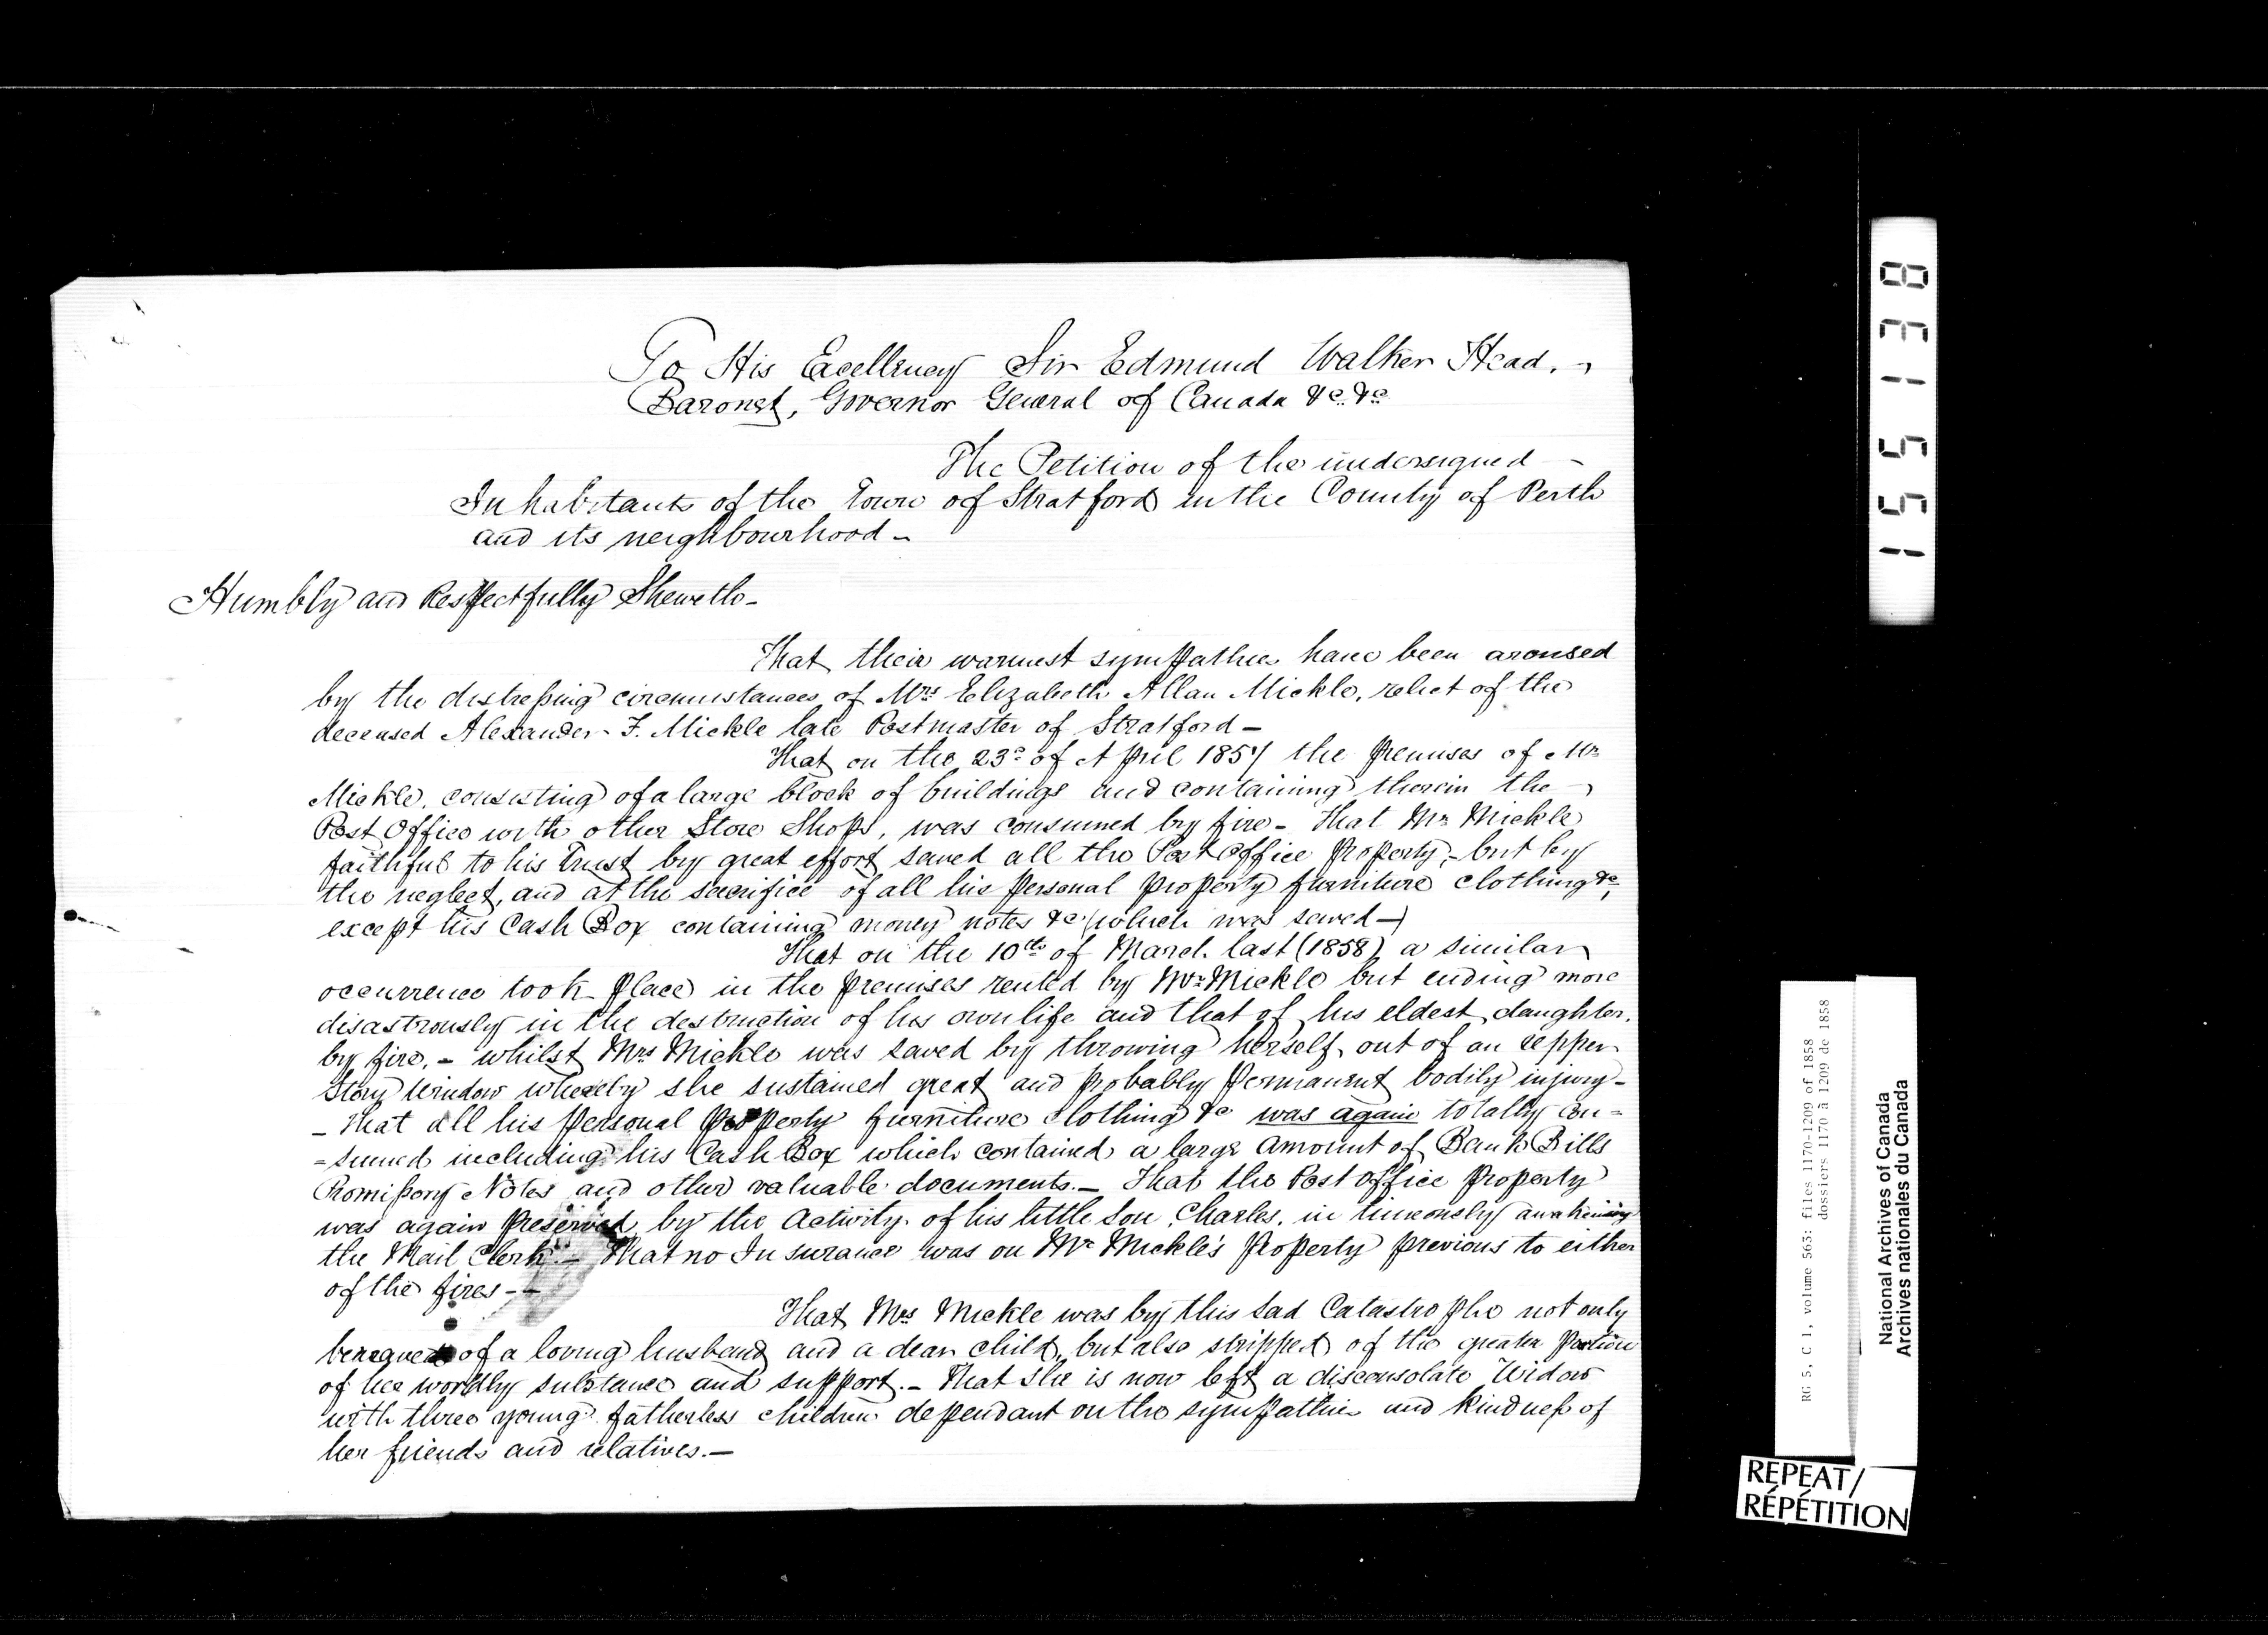 To His Excellency Sir Edmund Walker Head,
Baronet, Governor General of Canada &c. &c.
The Petition of the undersigned -
Inhabitants of the Town of Stratford in the County of Perth
and its neighbourhood -
Humbly and Respectfully Sheweth -
That their warmest sympathies have been aroused
by the distressing circumstances of Mrs Elizabeth Allan Mickle, relict of the
deceased Alexander F. Mickle late Postmaster of Stratford -
That on the 23d of April 1857 the premises of Mr
Mickle, consisting of a large block of buildings and containing therein the
Post Office with other Store Shops, was consumed by fire - That Mr Mickle
faithful to his Trust by great effort saved all the Post Office property, - but by
the neglect, and at the sacrifice of all his personal property furniture clothing &c,
except his Cash Box containing money notes &c (which was saved -)
That on the 10th of March last (1858) a similar
occurrence took place in the premises rented by Mr Mickle but ending more
disastrously in the destruction of his own life and that of his eldest daughter,
by fire, - whilst Mrs Mickle was saved by throwing herself out of an upper
Story Window whereby she sustained great and probably permanent bodily injury -
- That all his personal property furniture clothing &c was again totally con=
=sumed including his Cash Box which contained a large amount of Bank Bills
Promissory Notes and other valuable documents. - That the Post office property
was again preserved by the Activity of his little Son Charles, in timeously awakening
the Mail Clerk. - That no Insurance was on Mr Mickle's Property previous to either
of the fires - -
That Mrs Mickle was by this sad Catastrophe not only
of a loving husband and a dear child, but also stripped of the greater portion
of her wordly substance and support. - That she is now left a disconsolate Widow
with three young fatherless children dependant on the sympathies and kindness of
her friends and relatives. -
155138
RG 5, C 1, volume 563: files 1170-1209 of 1858
dossiers 1170 à 1209 de 1858
National Archives of Canada
Archives nationales du Canada
REPEAT/
RÉPÉTITION